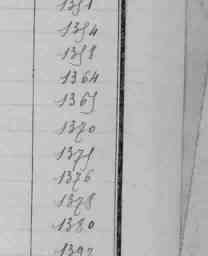 1351
1354
1358
1364
1365
1370
1371
1376
1378
1380